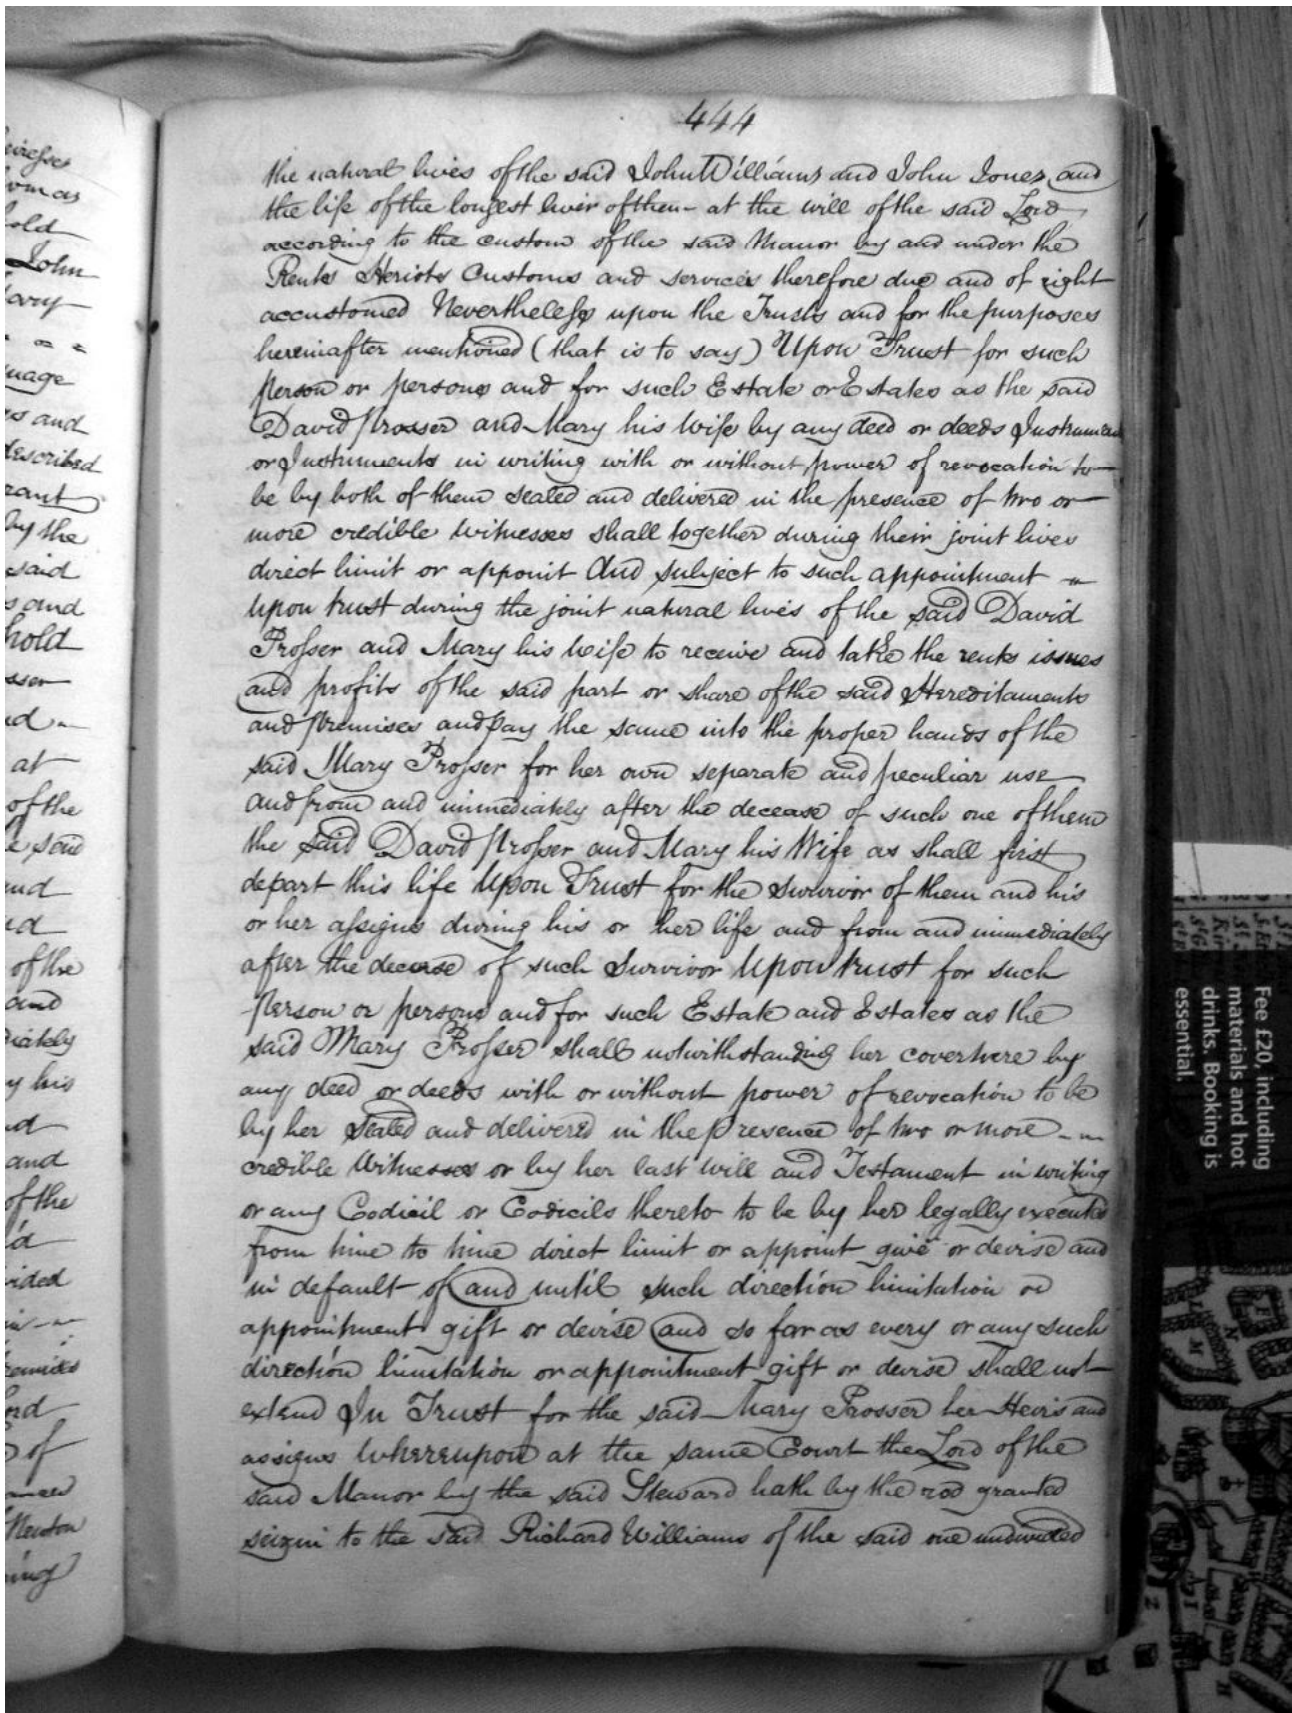 444
the natural lives of the said John Williams and John Jones and
the life of the longest liver of them at the will of the said Lord
according to the custom of the said Manor by and under the
Rents Heriots Customs and services therefore due and of right
accustomed Nevertheless upon the Trusts and for the purposes
hereinafter mentioned (that is to say) Upon Trust for such
person or persons and for such Estate or Estates as the said
David Prosser and Mary his Wife by any deed or deeds Instrument
or Instruments in writing with or without power of revocation to
be by both of them sealed and delivered in the presence of two or
more credible witnesses shall together during their joint lives
direct limit or appoint And subject to such appointment
upon trust during the joint natural lives of the said David
Prosser and Mary his Wife to receive and take the rents issues
and profits of the said part or share of the said Hereditaments
and premises and pay the same into the proper hands of the
said Mary Prosser for her own separate and peculiar use
and from and immediately after the decease of such one of them
the said David Prosser and Mary his Wife as shall first
depart this life Upon Trust for the Survivor of them and his
or her assigns during his or her life and from and immediately
after the decease of such Survivor Upon trust for such
person or persons and for such Estate and Estates as the
said Mary Prosser shall notwithstanding her coverture by
any deed or deeds with or without power of revocation to be
by her Sealed and delivered in the presence of two or more
credible Witnesses or by her last will and Testament in writing
or any Codicil or Codicils thereto to be by her legally executed
from time to time direct limit or appoint give or devise and
in default of and until such direction limitation or
appointment gift or devise and so far as every or any such
direction limitation or appointment gift or devise shall not
extend In Trust for the said Mary Prosser her Heirs and
assigns Whereupon at the same Court the Lord of the
said Manor by the said Steward hath by the rod granted
seizin to the said Richard Williams of the said one undivided
hold
John
and
described
by the
said
and
hold
at
of the
said
of the
and
his
and
of the
of
Fee £20, including
materials and hot
drinks. Booking is
essential.